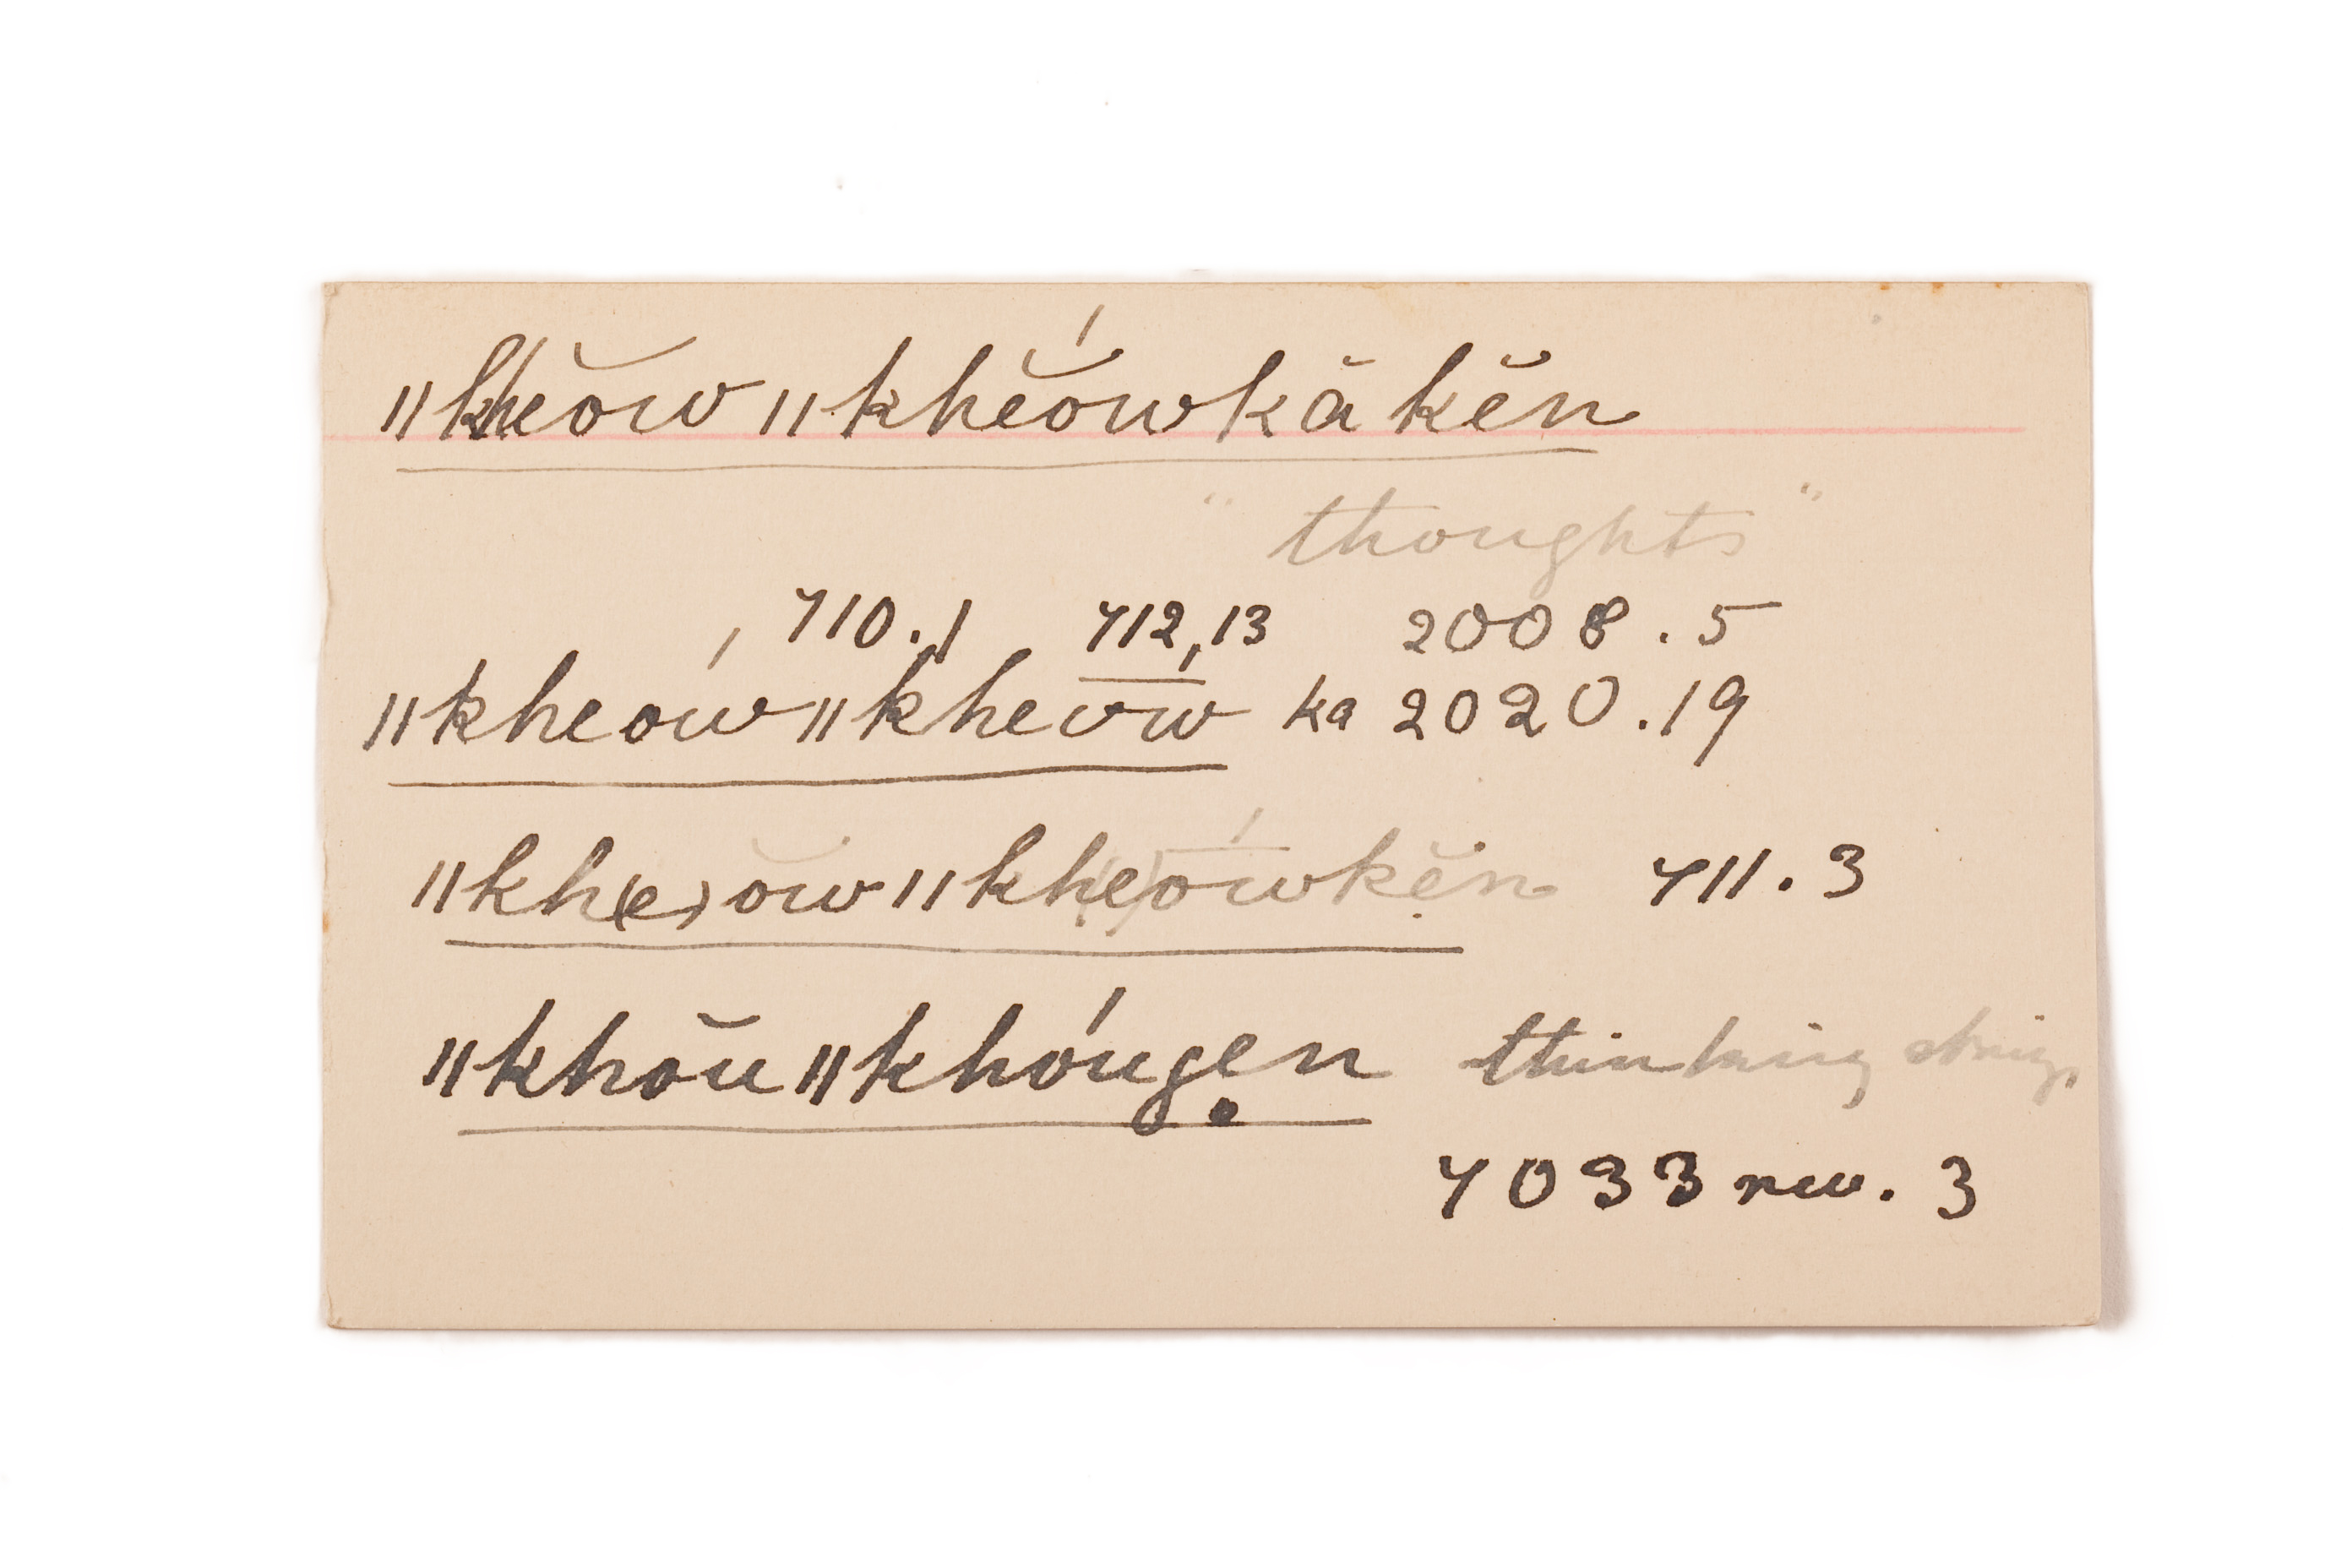 ǁkhĕŏw ǁkhĕówkă kĕn
"thoughts"
710.1 712,13 2008.5
ǁkheów ǁkheow ka 2020.19
ǁkh(e)ŏw ǁkh(e)ówkĕn 711.3
ǁkhŏu ǁkhóugẹn thinking strings
7033 rev. 3